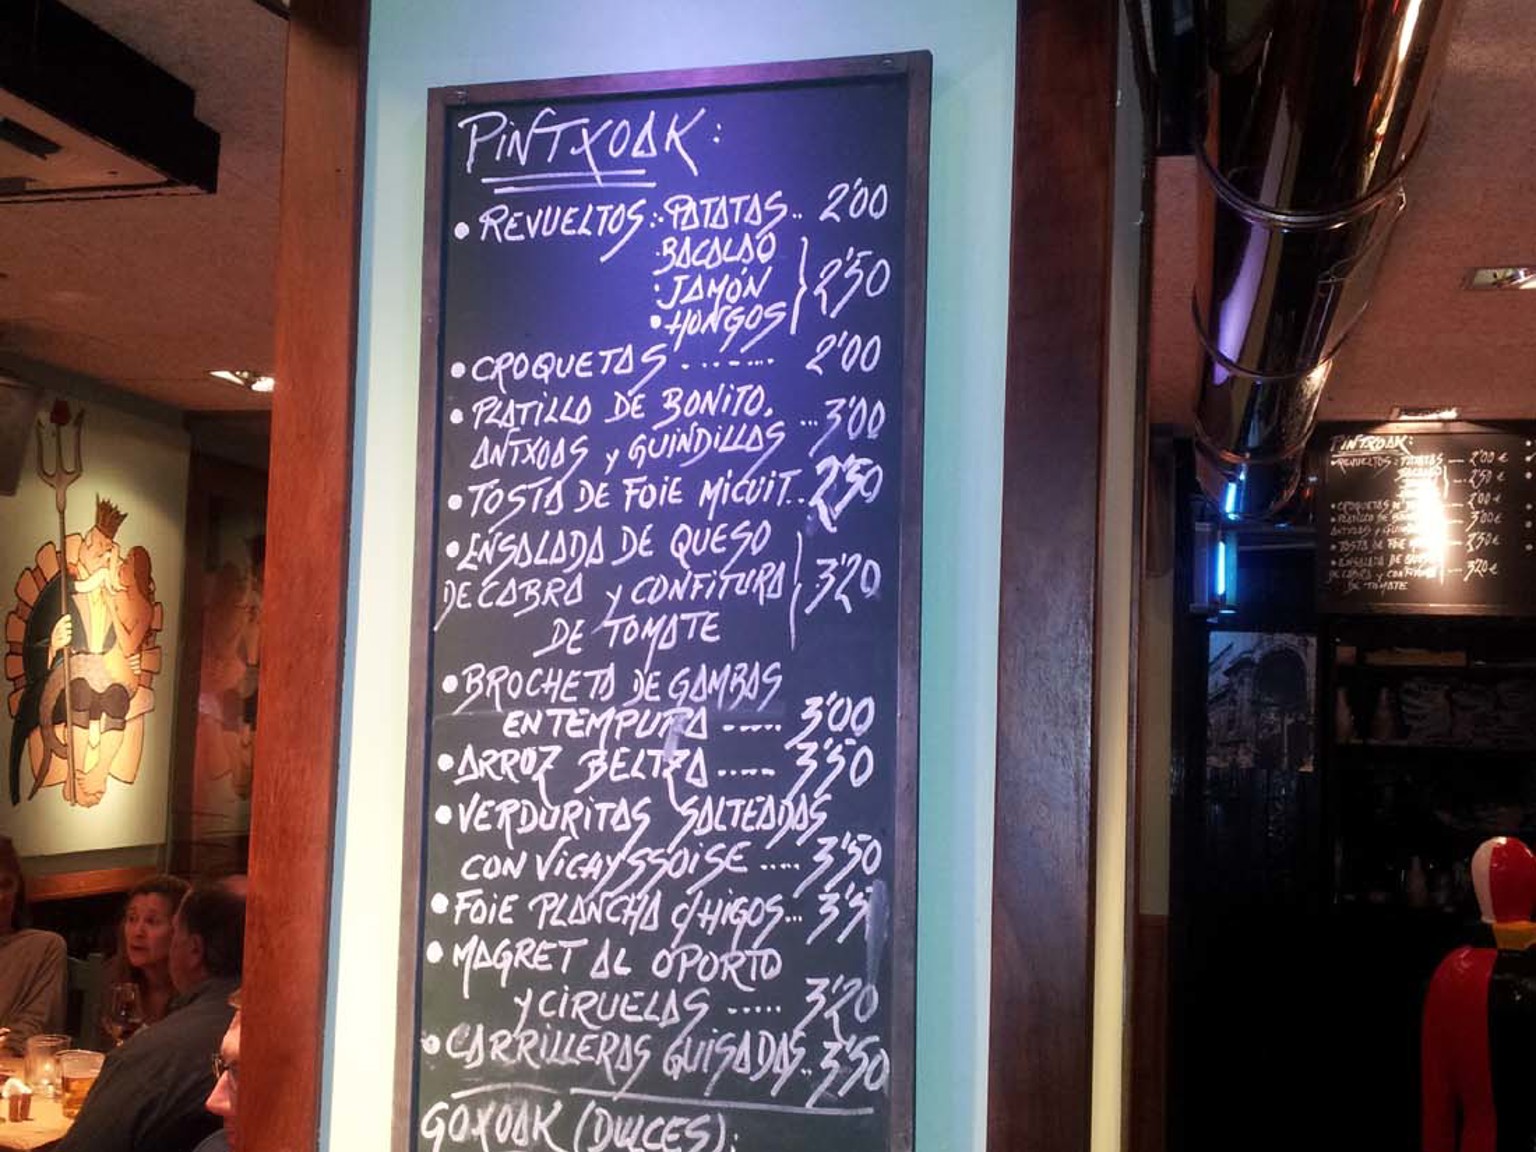 PINTXOAK:
• REVUELTOS: · PATATAS.. 2'00
· BACALAO
· JAMÓN 2'50
• HONGOS
• CROQUETAS ....... 2'00
• PLATILLO DE BONITO,
ANTXOAS y GUINDILLAS ... 3'00
• TOSTA DE FOIE MICUIT.. 2'50
• ENSALADA DE QUESO
DE CABRA y CONFITURA 3'20
DE TOMATE
• BROCHETA DE GAMBAS
EN TEMPURA ..... 3'00
• ARROZ BELTZA ..... 3'50
• VERDURITAS SALTEADAS
CON VICHYSSOISE .... 3'50
• FOIE PLANCHA c/HIGOS...
• MAGRET AL OPORTO
y CIRUELAS ..... 3'20
• CARRILLERAS GUISADAS.. 3'50
GOXOAK (DULCES):
PINTXOAK:
• REVUELTOS: PATATAS 2'00 €
2'50 €
• CROQUETAS 2'00 €
3'00 €
• TOSTA DE FOIE 2'50 €
ENSALADA DE
DE CABRA y 3'20 €
DE TOMATE